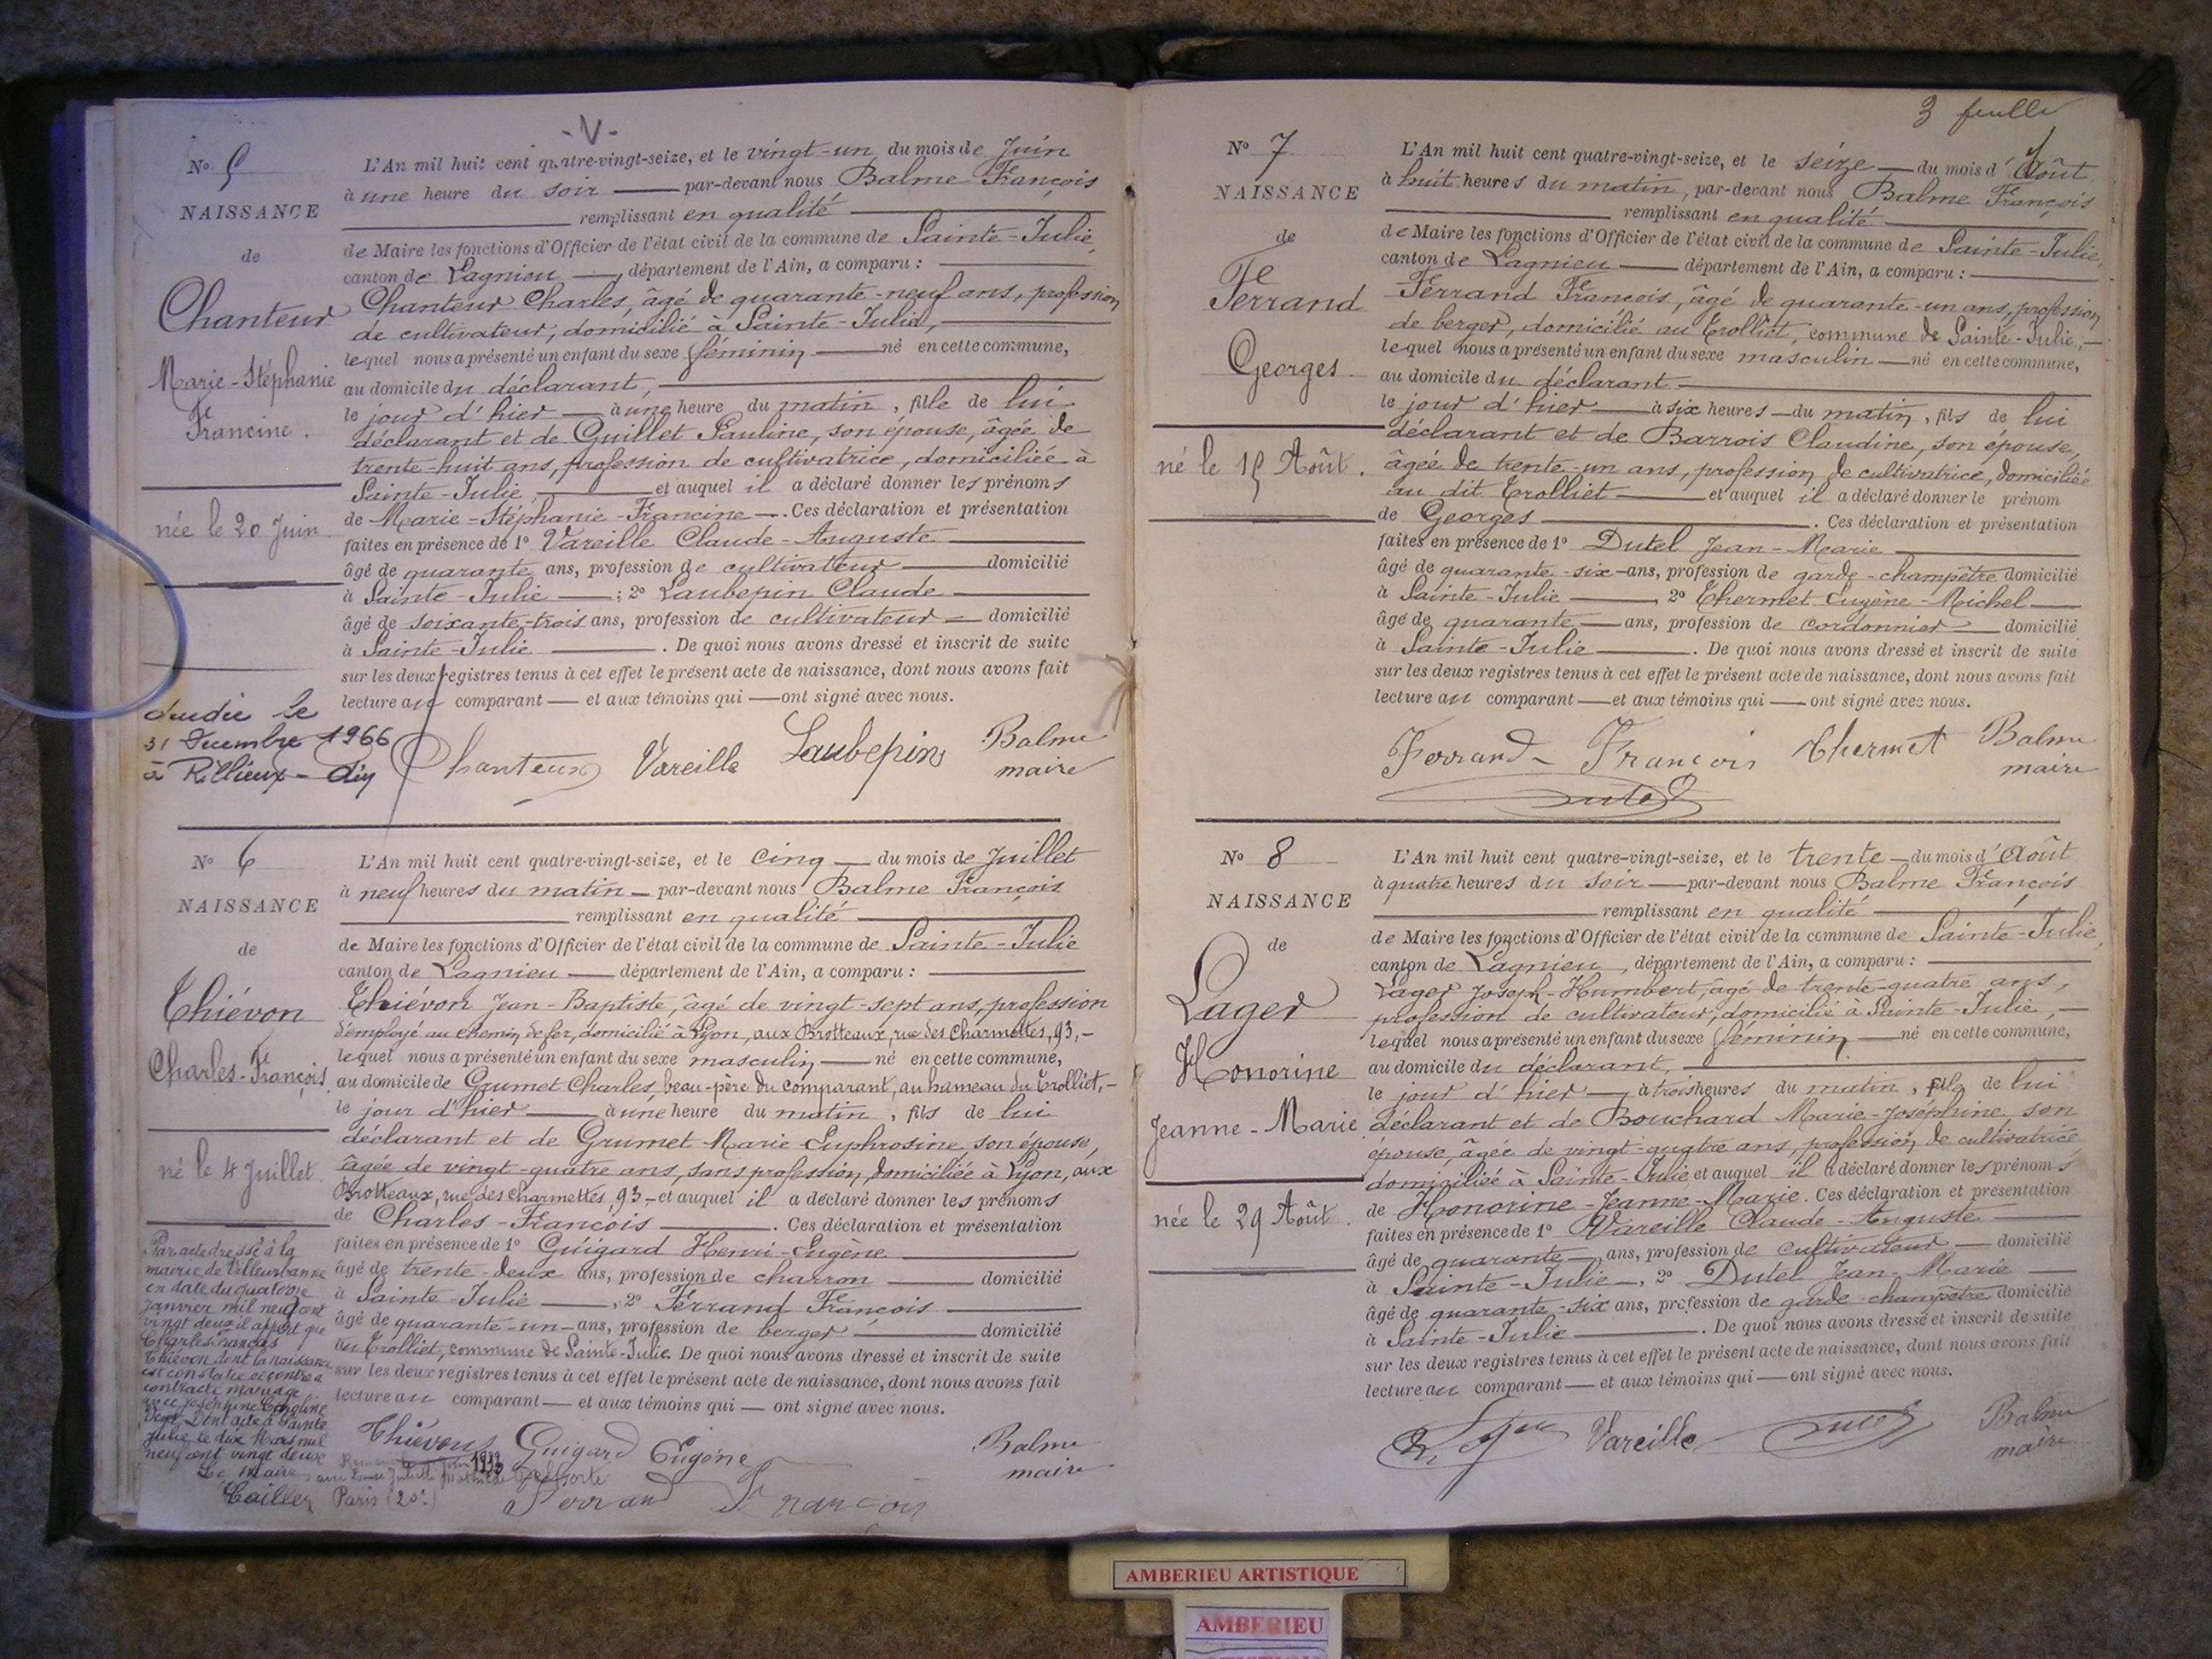 - V -
N° 5
NAISSANCE
de
Chanteur
Marie-Stéphanie
Francine.
née le 20 Juin
décédée le
31 Décembre 1966
à Rillieux - Ain
L'An mil huit cent quatre-vingt-seize, et le vingt-un du mois de Juin
à une heure du soir par-devant nous Balme François
remplissant en qualité
de Maire les fonctions d'Officier de l'état civil de la commune de Sainte-Julie,
canton de Lagnieu, département de l'Ain, a comparu :
Chanteur Charles, âgé de quarante-neuf ans, profession
de cultivateur, domicilié à Sainte-Julie,
lequel nous a présenté un enfant du sexe féminin né en cette commune,
au domicile du déclarant,
le jour d'hier à une heure du matin, fille de lui
déclarant et de Guillet Pauline, son épouse, âgée de
trente-huit ans, profession de cultivatrice, domiciliée à
Sainte-Julie, et auquel il a déclaré donner les prénoms
de Marie-Stéphanie-Francine. Ces déclaration et présentation
faites en présence de 1° Vareille Claude-Auguste
âgé de quarante ans, profession de cultivateur domicilié
à Sainte-Julie ; 2° Laubepin Claude
âgé de soixante-trois ans, profession de cultivateur domicilié
à Sainte-Julie. De quoi nous avons dressé et inscrit de suite
sur les deux registres tenus à cet effet le présent acte de naissance, dont nous avons fait
lecture au comparant et aux témoins qui ont signé avec nous.
Chanteur Vareille Laubepin Balme
maire
N° 6
NAISSANCE
de
Thiévon
Charles-François.
né le 4 Juillet.
Par acte dressé à la
mairie de Villeurbanne
en date du quatorze
janvier mil neuf cent
vingt deux il appert que
Charles François
Thiévon dont la naissance
est constatée ci-contre a
contracté mariage
avec Joséphine
Dont acte à Sainte
Julie le dix Mars mil
neuf cent vingt deux
Le Maire
Paris (20e)
L'An mil huit cent quatre-vingt-seize, et le cinq du mois de Juillet
à neuf heures du matin par-devant nous Balme François
remplissant en qualité
de Maire les fonctions d'Officier de l'état civil de la commune de Sainte-Julie
canton de Lagnieu département de l'Ain, a comparu :
Thiévon Jean-Baptiste, âgé de vingt-sept ans, profession
d'employé au chemin de fer, domicilié à Lyon, aux Brotteaux, rue des Charmettes, 93,
lequel nous a présenté un enfant du sexe masculin né en cette commune,
au domicile de Grumet Charles, beau-père du comparant, au hameau du Trolliet,
le jour d'hier à une heure du matin, fils de lui
déclarant et de Grumet Marie-Euphrosine, son épouse,
âgée de vingt-quatre ans, sans profession, domiciliée à Lyon, aux
Brotteaux, rue des Charmettes, 93, et auquel il a déclaré donner les prénoms
de Charles-François. Ces déclaration et présentation
faites en présence de 1° Guigard Henri-Eugène
âgé de trente-deux ans, profession de charron domicilié
à Sainte-Julie, 2° Ferrand François
âgé de quarante-un ans, profession de berger domicilié
au Trolliet, commune de Sainte-Julie. De quoi nous avons dressé et inscrit de suite
sur les deux registres tenus à cet effet le présent acte de naissance, dont nous avons fait
lecture au comparant et aux témoins qui ont signé avec nous.
Thiévon Guigard Eugène Balme
maire
Ferrand François
3 feuille
N° 7
NAISSANCE
de
Ferrand
Georges
né le 15 Août.
L'An mil huit cent quatre-vingt-seize, et le seize du mois d'Août
à huit heures du matin, par-devant nous Balme François
remplissant en qualité
de Maire les fonctions d'Officier de l'état civil de la commune de Sainte-Julie,
canton de Lagnieu département de l'Ain, a comparu :
Ferrand François, âgé de quarante-un ans, profession
de berger, domicilié au Trolliet, commune de Sainte-Julie,
lequel nous a présenté un enfant du sexe masculin né en cette commune,
au domicile du déclarant
le jour d'hier à six heures du matin, fils de lui
déclarant et de Barrois Claudine, son épouse,
âgée de trente-un ans, profession de cultivatrice, domiciliée
au dit Trolliet et auquel il a déclaré donner le prénom
de Georges. Ces déclaration et présentation
faites en présence de 1° Dutel Jean-Marie
âgé de quarante-six ans, profession de garde-champêtre domicilié
à Sainte-Julie, 2° Thermet Eugène-Michel
âgé de quarante ans, profession de cordonnier domicilié
à Sainte-Julie. De quoi nous avons dressé et inscrit de suite
sur les deux registres tenus à cet effet le présent acte de naissance, dont nous avons fait
lecture au comparant et aux témoins qui ont signé avec nous.
Ferrand François Thermet Balme
maire
Dutel
N° 8
NAISSANCE
de
Lager
Honorine
Jeanne-Marie.
née le 29 Août.
L'An mil huit cent quatre-vingt-seize, et le trente du mois d'Août
à quatre heures du soir par-devant nous Balme François
remplissant en qualité
de Maire les fonctions d'Officier de l'état civil de la commune de Sainte-Julie,
canton de Lagnieu, département de l'Ain, a comparu :
Lager Joseph-Humbert, âgé de trente-quatre ans,
profession de cultivateur, domicilié à Sainte-Julie,
lequel nous a présenté un enfant du sexe féminin né en cette commune,
au domicile du déclarant,
le jour d'hier à trois heures du matin, fille de lui
déclarant et de Bouchard Marie-Joséphine, son
épouse, âgée de vingt-quatre ans, profession de cultivatrice
domiciliée à Sainte-Julie, et auquel il a déclaré donner les prénoms
de Honorine-Jeanne-Marie. Ces déclaration et présentation
faites en présence de 1° Vareille Claude-Auguste
âgé de quarante ans, profession de cultivateur domicilié
à Sainte-Julie, 2° Dutel Jean-Marie
âgé de quarante-six ans, profession de garde-champêtre domicilié
à Sainte-Julie. De quoi nous avons dressé et inscrit de suite
sur les deux registres tenus à cet effet le présent acte de naissance, dont nous avons fait
lecture au comparant et aux témoins qui ont signé avec nous.
Vareille Dutel Balme
maire
AMBERIEU ARTISTIQUE
AMBERIEU